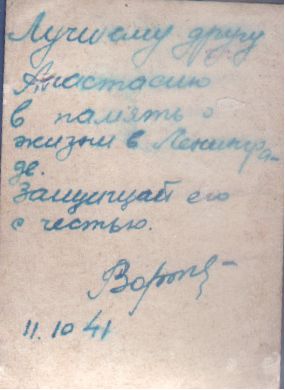 Лучшему другу
Анастасию
в память о
жизни в Ленингра-
де.
Защищай его
с честью.
11.10 41